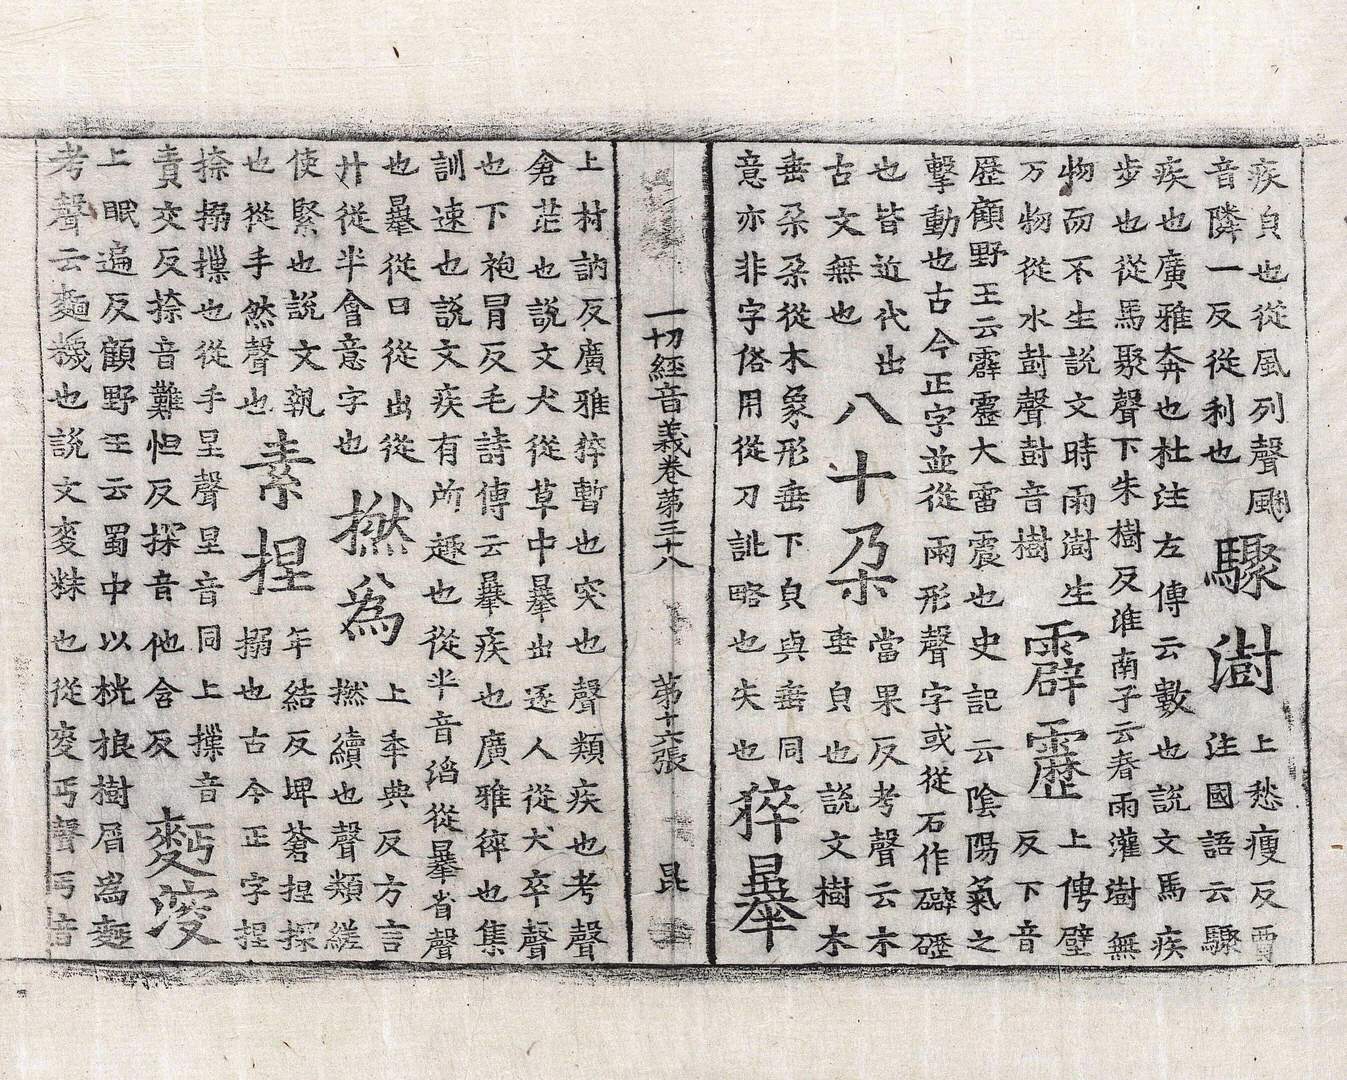 疾皃也從風列聲颲 驟澍 上愁瘦反賈
音隣一反從利也 注國語云驟
疾也廣雅奔也杜注左傳云數也說文馬疾
步也從馬聚聲下朱樹反淮南子云春雨灌澍無
物而不生說文時雨澍生
万物從水尌聲尌音樹 霹靂 上傅壁反下音
歷顧野王云霹靂大雷震也史記云陰陽氣之
擊動也古今正字並從雨形聲字或從石作礔礰
也皆近代出
古文無也 八十朶 當果反考聲云木垂皃也說文樹木
垂朶朶從木象形垂下皃與垂同
意亦非字俗用從刀訛略也失也 猝㬥
一切經音義卷第三十八 第十六張 昆
上村訥反廣雅猝暫也突也聲類疾也考聲
倉茫也說文犬從草中㬥出逐人從犬卒聲
也下袍冒反毛詩傳云㬥疾也廣雅猝也集
訓速也說文疾有所趣也從半音滔從㬥省聲
也㬥從日從出從
廾從半會意字也 撚爲 上奉典反方言撚續也聲類縒
使緊也說文執
也從手然聲也 素捏 年結反埤蒼捏搩搦也古今正字捏
捺搦攥也從手圼聲圼音同上攥音
責交反捺音難怛反探音他含反 麫䕕
上眠遍反顧野王云蜀中以桄桹樹屑爲麵
考聲云麵糆也說文麥䊳也從麥丏聲丏音